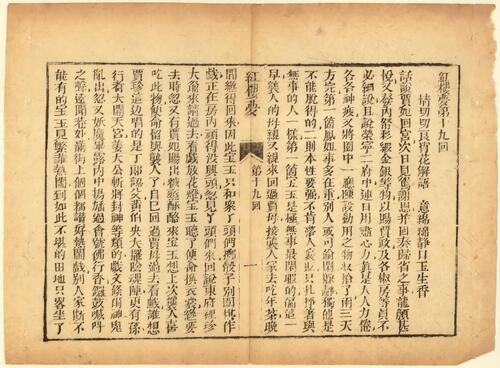 紅樓夢第十九回
情切切良宵花解語 意綿綿靜日玉生香
話說賈妃回宮次日見駕謝恩並回奏歸省之事龍顏甚
悅又發內帑彩緞金銀等物以賜賈政及各椒房等員不
必細說且說榮寧二府中連日用盡心力真是人人力倦
各各神疲又將園中一應陳設動用之物收拾了兩三天
方完第一個鳳姐事多任重別人或可偷閒躲靜獨他是
不能脫得的二則本性要强不肯落人褒貶只扎掙著與
無事的人一樣第一個宝玉是極無事最閒暇的偏這一
早襲人的母親又親來回過賈母接襲人家去吃年茶晚
紅樓夢 第十九回 一
間纔得回來因此宝玉只和衆丫頭們擲骰子趕圍棋作
戲正在房內頑得沒興頭忽見丫頭們來回說東府裡珍
大爺來請過去看戲放花燈宝玉聽了便命換衣裳纔要
去時忽又有賈妃賜出糖蒸酥酪來宝玉想上次襲人喜
吃此物便命留與襲人了自己回過賈母過去看戲誰想
賈珍這邊唱的是丁郎認父黃伯央大擺陰魂陣更有孫
行者大鬧天宮姜太公斬將封神等類的戲文倏爾神鬼
亂出忽又妖魔畢露內中揚旛過會號佛行香鑼鼓喊叫
之聲遠聞巷外滿街上個個都讚好熱鬧戲別人家斷不
能有的宝玉見繁華熱鬧到如此不堪的田地只畧坐了